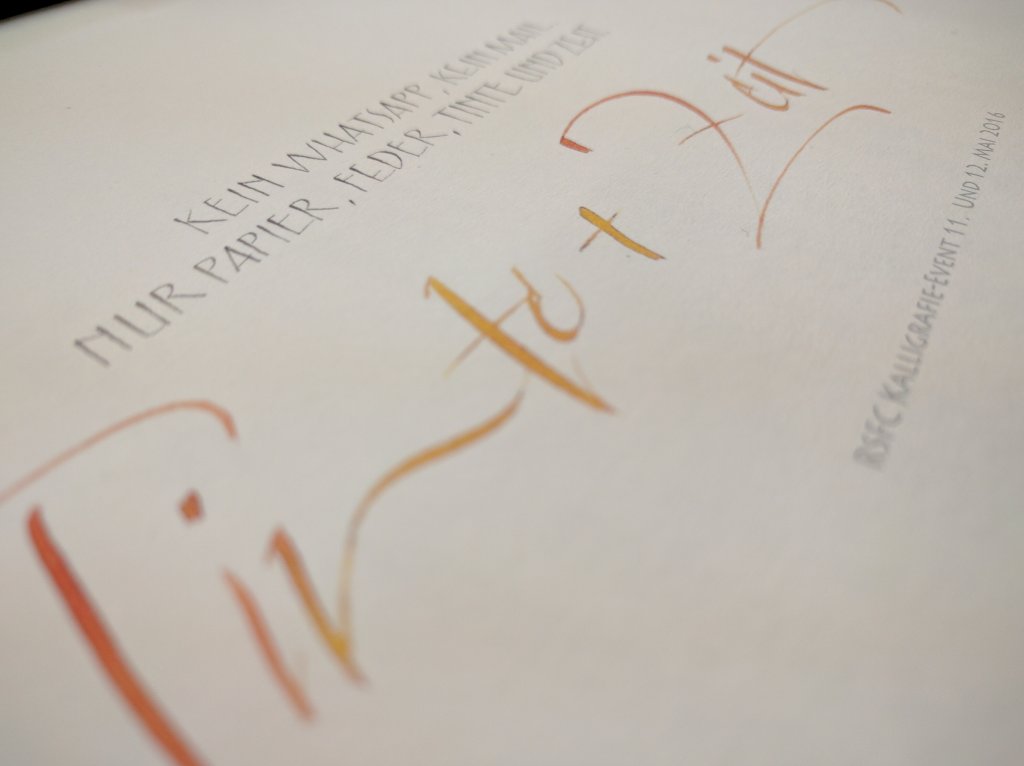 KEIN WHATSAPP, KEIN MAIL
NUR PAPIER, FEDER, TINTE UND ZEIT
Tinte + Zeit
RSFC KALLIGRAFIE-EVENT 11. UND 12. MAI 2016